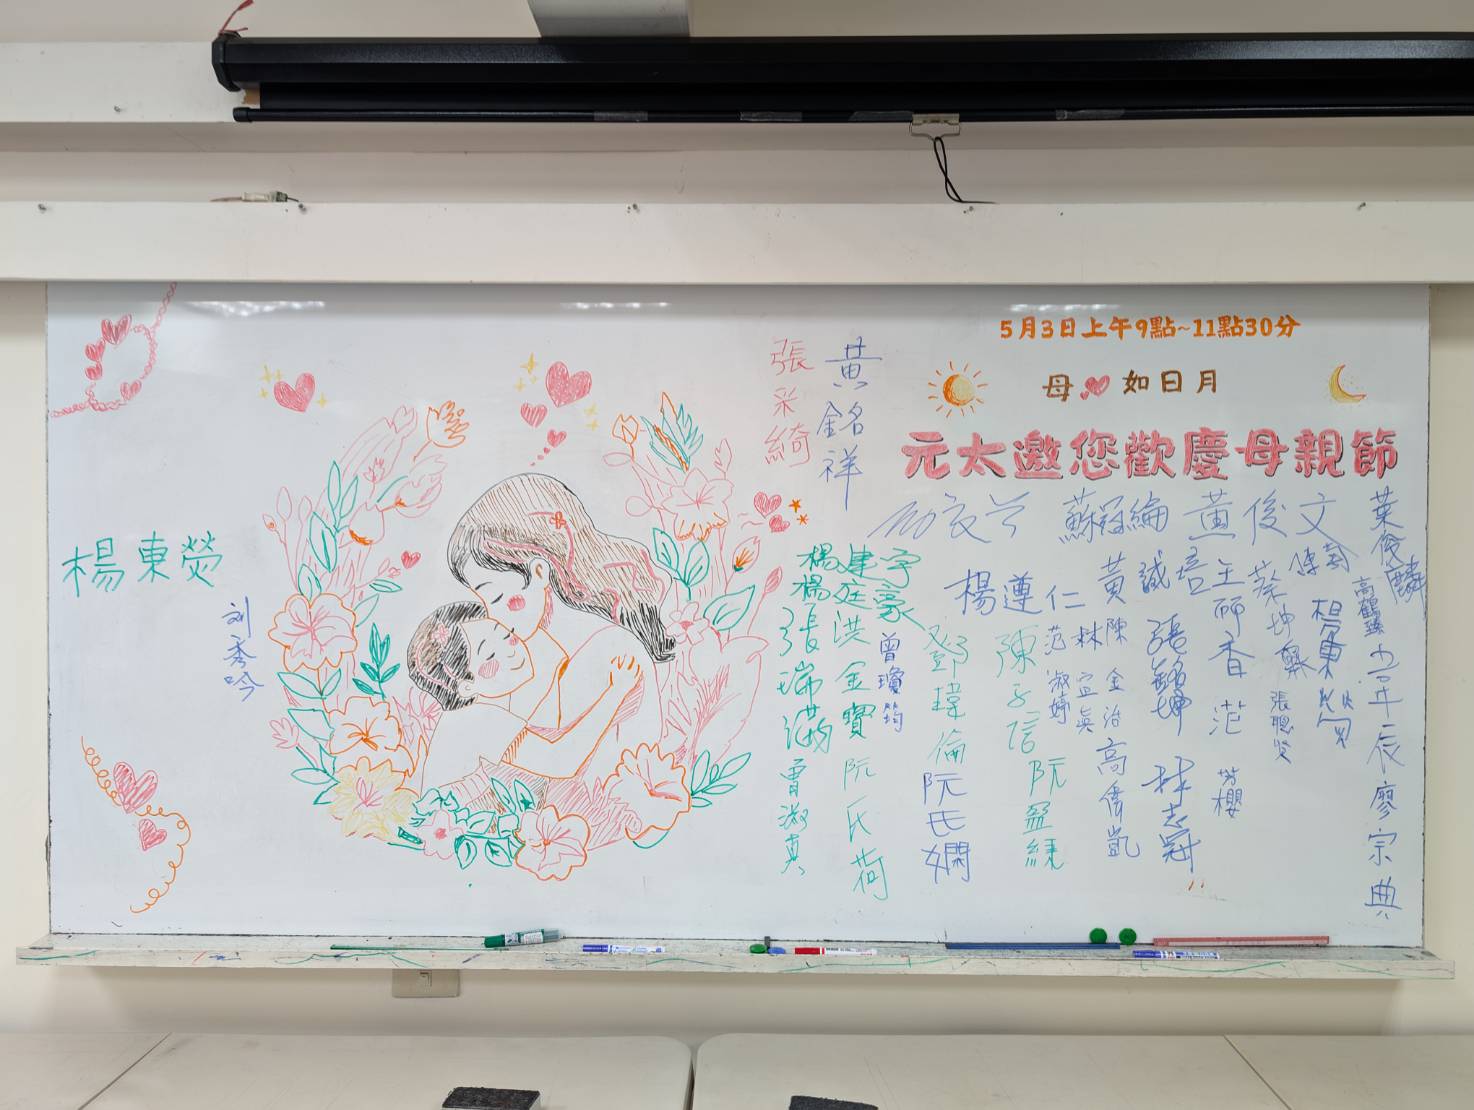 5月3日上午9點~11點30分
母 如日月
元太邀您歡慶母親節
張采綺
黃銘祥
楊東熒
刘秀吟
蘇冠綸
黃俊文
葉俊麟
楊遵仁
黃誠培
楊建宇
楊庭豪
張瑞滿
洪金寶
曾瓊筠
曾淑真
阮氏荷
鄧瑋倫
阮氏嫻
陳子信
阮盈綠
范淑婷
林宜臻
陳金治
高偉凱
張銘坤
林志冠
王研香
范
芬櫻
蔡坤龍
張聰發
廖宗典